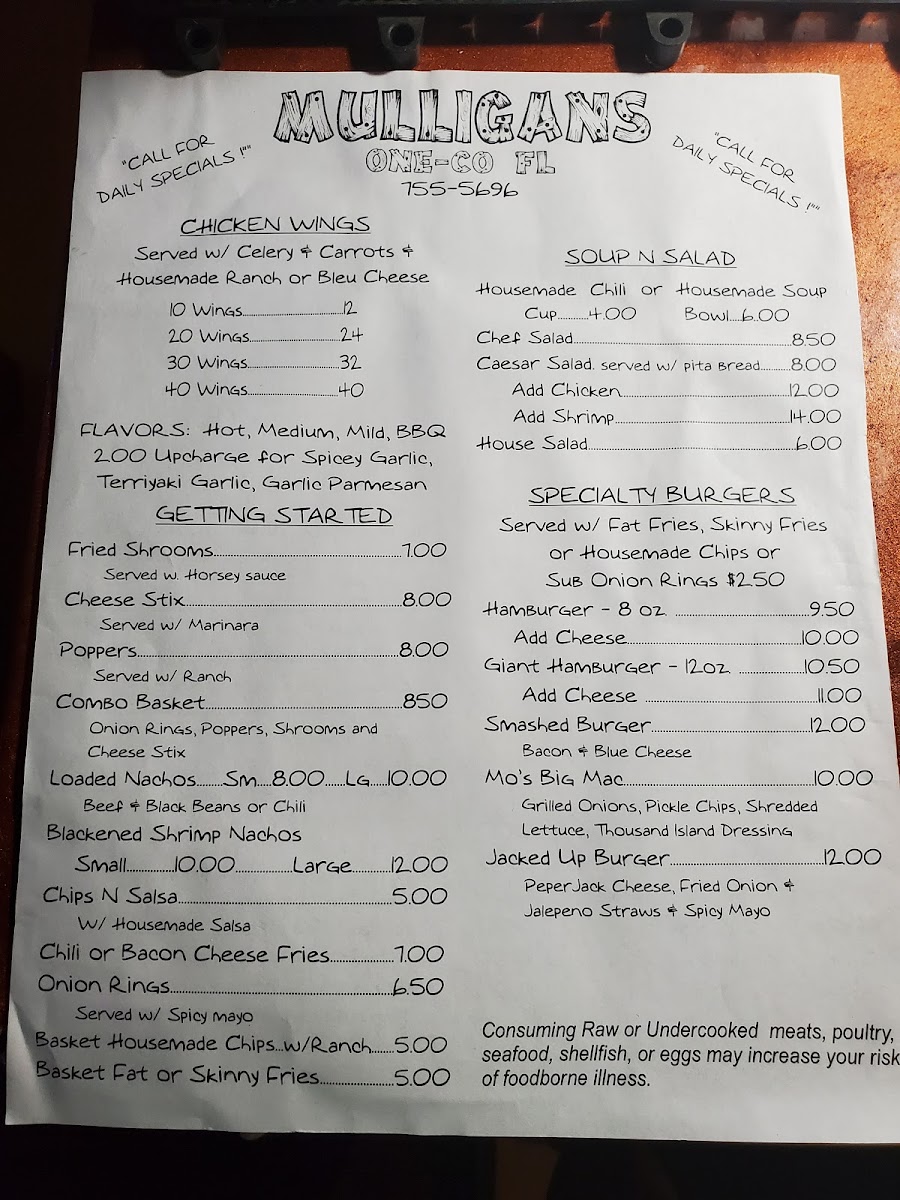 MULLIGANS
ONE-CO FL
755-5696
"CALL FOR
DAILY SPECIALS !""
"CALL FOR
DAILY SPECIALS !""
CHICKEN WINGS
Served w/ Celery & Carrots &
Housemade Ranch or Bleu Cheese
10 Wings..........12
20 Wings..........24
30 Wings..........32
40 Wings..........40
FLAVORS: Hot, Medium, Mild, BBQ
2.00 Upcharge for Spicey Garlic,
Terriyaki Garlic, Garlic Parmesan
GETTING STARTED
Fried Shrooms..........7.00
Served w. Horsey sauce
Cheese Stix..........8.00
Served w/ Marinara
Poppers..........8.00
Served w/ Ranch
Combo Basket..........8.50
Onion Rings, Poppers, Shrooms and
Cheese Stix
Loaded Nachos.......Sm....8.00......Lg....10.00
Beef & Black Beans or Chili
Blackened Shrimp Nachos
Small..........10.00..........Large..........12.00
Chips N Salsa..........5.00
W/ Housemade Salsa
Chili or Bacon Cheese Fries..........7.00
Onion Rings..........6.50
Served w/ Spicy mayo
Basket Housemade Chips...w/Ranch.......5.00
Basket Fat or Skinny Fries..........5.00
SOUP N SALAD
Housemade Chili or Housemade Soup
Cup..........4.00 Bowl....6.00
Chef Salad..........8.50
Caesar Salad. served w/ pita bread..........8.00
Add Chicken..........12.00
Add Shrimp..........14.00
House Salad..........6.00
SPECIALTY BURGERS
Served w/ Fat Fries, Skinny Fries
or Housemade Chips or
Sub Onion Rings $2.50
Hamburger - 8 oz. ..........9.50
Add Cheese..........10.00
Giant Hamburger - 12oz. ..........10.50
Add Cheese ..........11.00
Smashed Burger..........12.00
Bacon & Blue Cheese
Mo's Big Mac..........10.00
Grilled Onions, Pickle Chips, Shredded
Lettuce, Thousand Island Dressing
Jacked Up Burger..........12.00
PeperJack Cheese, Fried Onion &
Jalepeno Straws & Spicy Mayo
Consuming Raw or Undercooked meats, poultry,
seafood, shellfish, or eggs may increase your risk
of foodborne illness.